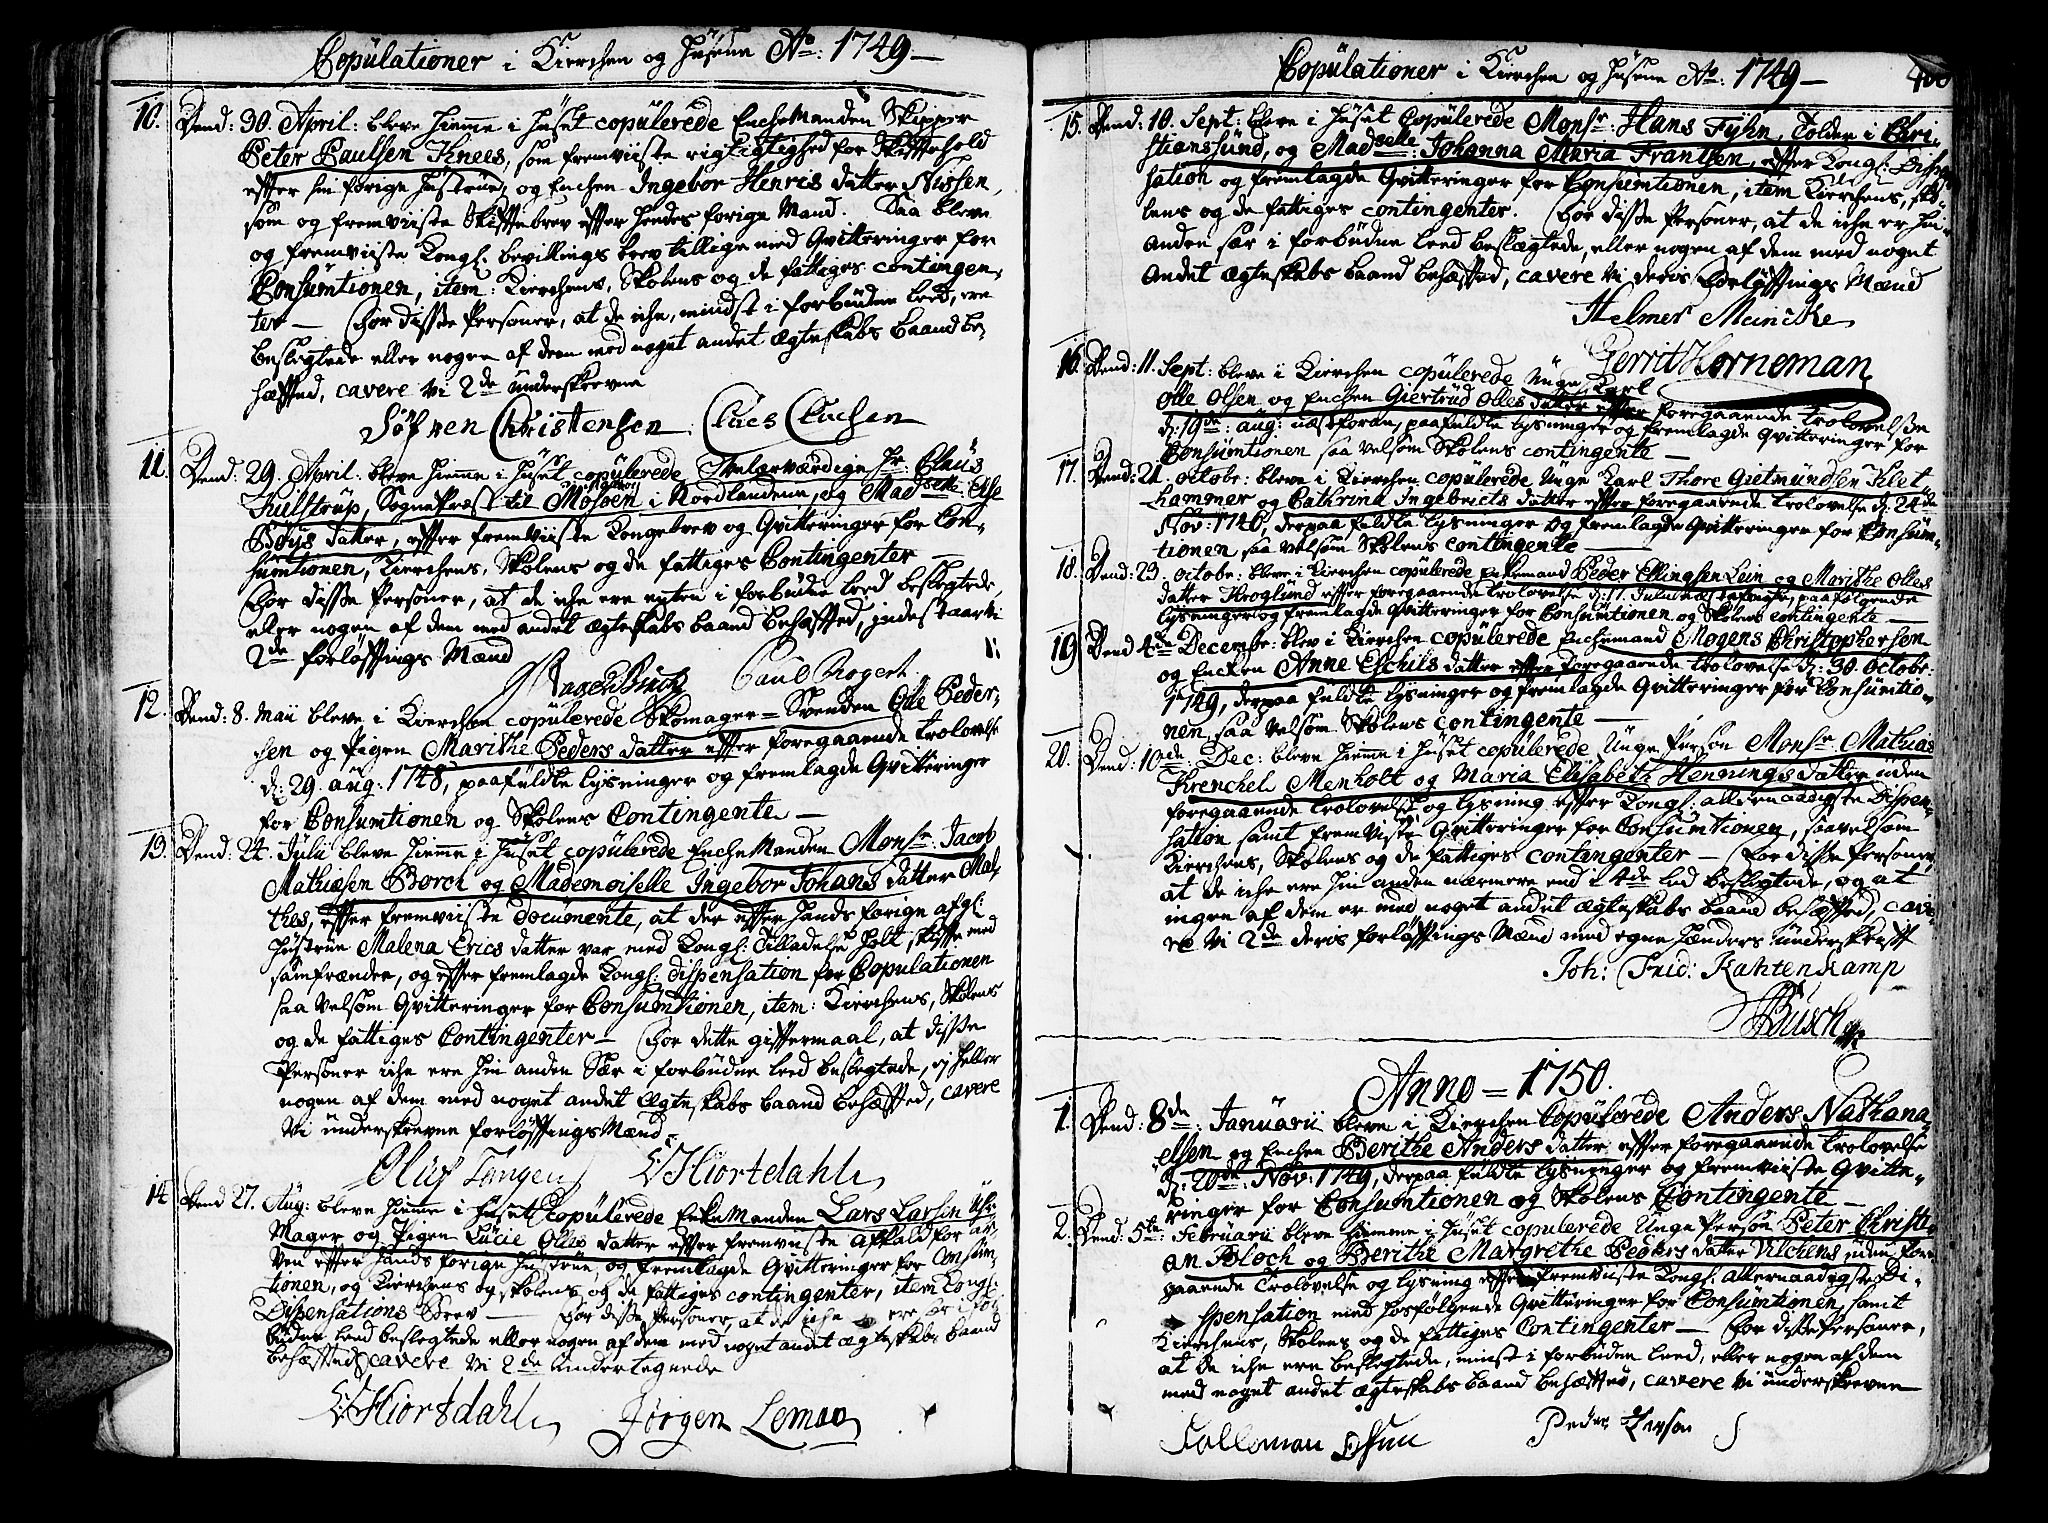 Copulationer i Kierchen og Husene Ao: 1749 —
10. Dend: 30. April: bleve hiemme i Huset copulerede Enche Manden Skipper
Peter Paulsen Knees, som fremviiste rigtighed for Skiftehold
efter sin forige Hustrue, og Enchen Ingebor Henrics datter Nissen,
som og fremviiste Skiftebrev efter hendes forige Mand. Saa bleve
og fremviiste Kongl: bevillings brev tillige med Qvitteringer for
Consumtionen, item: Kierchens, Skolens og de fattiges contingen-
ter — For disse Personer, at de iche, mindst i forbudne leed, ere
beslegtede eller nogen af dem med noget andet Ægteskabs baand be-
hæfted, cavere vi 2de underskrevne
Søfren Christensen Claes Clausen
11. Dend: 29. April: bleve hiemme i Huset copulerede Velærværdige Hr: Claus
Kulstrup, Sogne Præst til Mosøen i Nordlandene, og Madselle Else
Bøys datter, efter fremviiste Kongebrev og Qvitteringer for Con-
sumtionen, Kierchens, Skolens og de fattiges Contingenter —
For disse Personer, at de iche ere enten i forbudne leed beslegtede,
eller nogen af dem med andet Ægteskabs baand behæfted, indestaar vi
2de forløftings Mænd
Busch Paul Bogert
12. Dend: 8. Maii bleve i Kierchen copulerede Skomager = Svenden Ole Peder-
sen og Pigen Marithe Peders datter efter foregaaende trolovelse
d: 29. aug: 1748, paafuldte lysninger og fremlagde Qvitteringer
for Consumtionen og Skolens Contingente —
13. Dend: 24. Julii bleve hiemme i Huset copulerede Enche Manden Monsr Jacob
Mathiesen Borch og Mademoiselle Ingebor Johans datter Mal-
thes, efter fremviiste documente, at der efter hands forige afgl:
Hustrue Malena Erics datter var med Kongl: Tilladelse holt skifte med
samfrænder, og efter fremlagde Kongl: dispensation for Copulationen
saa velsom Qvitteringer for Consumtionen, item: Kierchens, Skolens
og de fattiges Contingenter — For dette giftermaal, at disse
Personer iche ere hin anden Sær i forbudne leed beslegtede, ej heller
nogen af dem med noget andet Ægteskabs baand behæfted, cavere
Vi underskrevne forløftings Mænd
Oluf Tangen Hiortdahl
14. Dend 27. Aug: bleve hiemme i Huset Copulerede Enke Manden Lars Larsen Uhr
Mager og Pigen Lucie Olles datter efter fremviiste afkald for ar-
ven efter hands forige Hustrue, og fremlagde Qvitteringer for Consum-
tionen, og Kierchens og skolens og de fattiges contingenter, item Kongl:
Dispensations Brev — For disse Personer, at de iche ere i for
budne leed beslegtede eller nogen af dem med noget andet ægteskabs baand
behæfted cavere Vi 2de Undertegnede
Hiortdahl Jørgen Leman
Copulationer i Kierchen og Husene Ao: 1749 —
15. Dend: 10. Sept: bleve i Huset Copulerede Monsr: Hans Fyhn, Tolder i Chri-
stianssund, og Madselle: Johanna Maria Frantsen, efter Kongl: Dispen-
sation og fremlagde Qvitteringer for Consumtionen, item Kierchens, Sko-
lens og de fattiges contingenter. For disse Personer, at de iche er hin-
anden sær i forbudne leed beslægtede, eller nogen af dem med noget
andet ægteskabs baand behæfted, cavere vi deris Forløftings Mænd
Helmer Muncke
Gerrit Horneman
16. Dend: 11. Sept: bleve i Kierchen copulerede Unge Karl
Olle Olsen og Enchen Giertrud Olles datter efter foregaaende trolovelse
d: 19de aug: næstforan, paafuldte lysninger og fremlagde Qvitteringer for
Consumtionen saa velsom Skolens contingente —
17. Dend: 21 octobr: bleve i Kierchen copulerede Unge Karl Thore Gietmundsen Klet
hammer og Cathrina Ingebricts datter efter foregaaende trolovelse d: 24de
Nov: 1746, derpaa fuldte lysninger og fremlagde Qvitteringer for Consum-
tionen saa velsom Skolens contingente —
18. Dend: 23. octobr: bleve i Kierchen copulerede Enkemand Peder Ellingsen Lein og Marithe Olles
datter Kroglund efter foregaaende trolovelse d: 11. Julii næstafvigte, paafølgende
lysninger og fremlagde Qvitteringer for Consumtionen og Skolens contingente —
19. Dend 4de Decembr: blev i Kierchen copulerede Enchemand Mogens Christophersen
og Encken Anne Eschils datter efter foregaaende trolovelse d: 30. octobr:
1749, derpaa fuldte lysninger og fremlagde Qvitteringer for Consumtio-
nen, saa velsom Skolens contingente —
20. Dend: 10de Dec: bleve hiemme i Huset copulerede Unge Person Monsr. Mathias
Krenchel Menholt og Maria Elisabeth Hennings datter uden
foregaaende trolovelse og lysning efter Kongl: allernaadigste Dispen-
sation samt fremviste Qvitteringer for Consumtionen, saavelsom
Kierchens, Skolens og de fattiges contingenter — For disse Personer,
at de iche ere hin anden nærmere end i 4de led beslegtede, og at
ingen af dem er med noget andet ægteskabs baand behæfted, cave-
re Vi 2de deris forløftings Mænd med egne hænders underskrift
Joh: Frid: Kahtenkamp
Busch
Anno = 1750.
1. Dend: 8de: Januarii bleve i Kierchen Copulerede Anders Nathana-
elsen og Enchen Berithe Anders datter efter foregaaende trolovelse
d: 20de: Nov: 1749, derpaa fuldte lysninger og fremviiste Qvitte-
ringer for Consumtionen og Skolens Contingente —
2. Dend: 5te: Februarii bleve hiemme i Huset copulerede Unge Person Peter Christi-
an Bloch og Berithe Margrethe Peders datter Vilchens uden fore
gaaende Trolovelse og lysning efter fremviiste Kongl: allernaadigste Di-
spensation med hosfølgende Qvitteringer for Consumtionen, samt
Kierchens, Skolens og de fattiges Contingenter — For disse Personer,
at de iche ere beslegtede, minst i forbuden leed, eller nogen af dem
med noget andet ægteskabs baand behæfted, cavere vi underskrevne
Peder Iversen